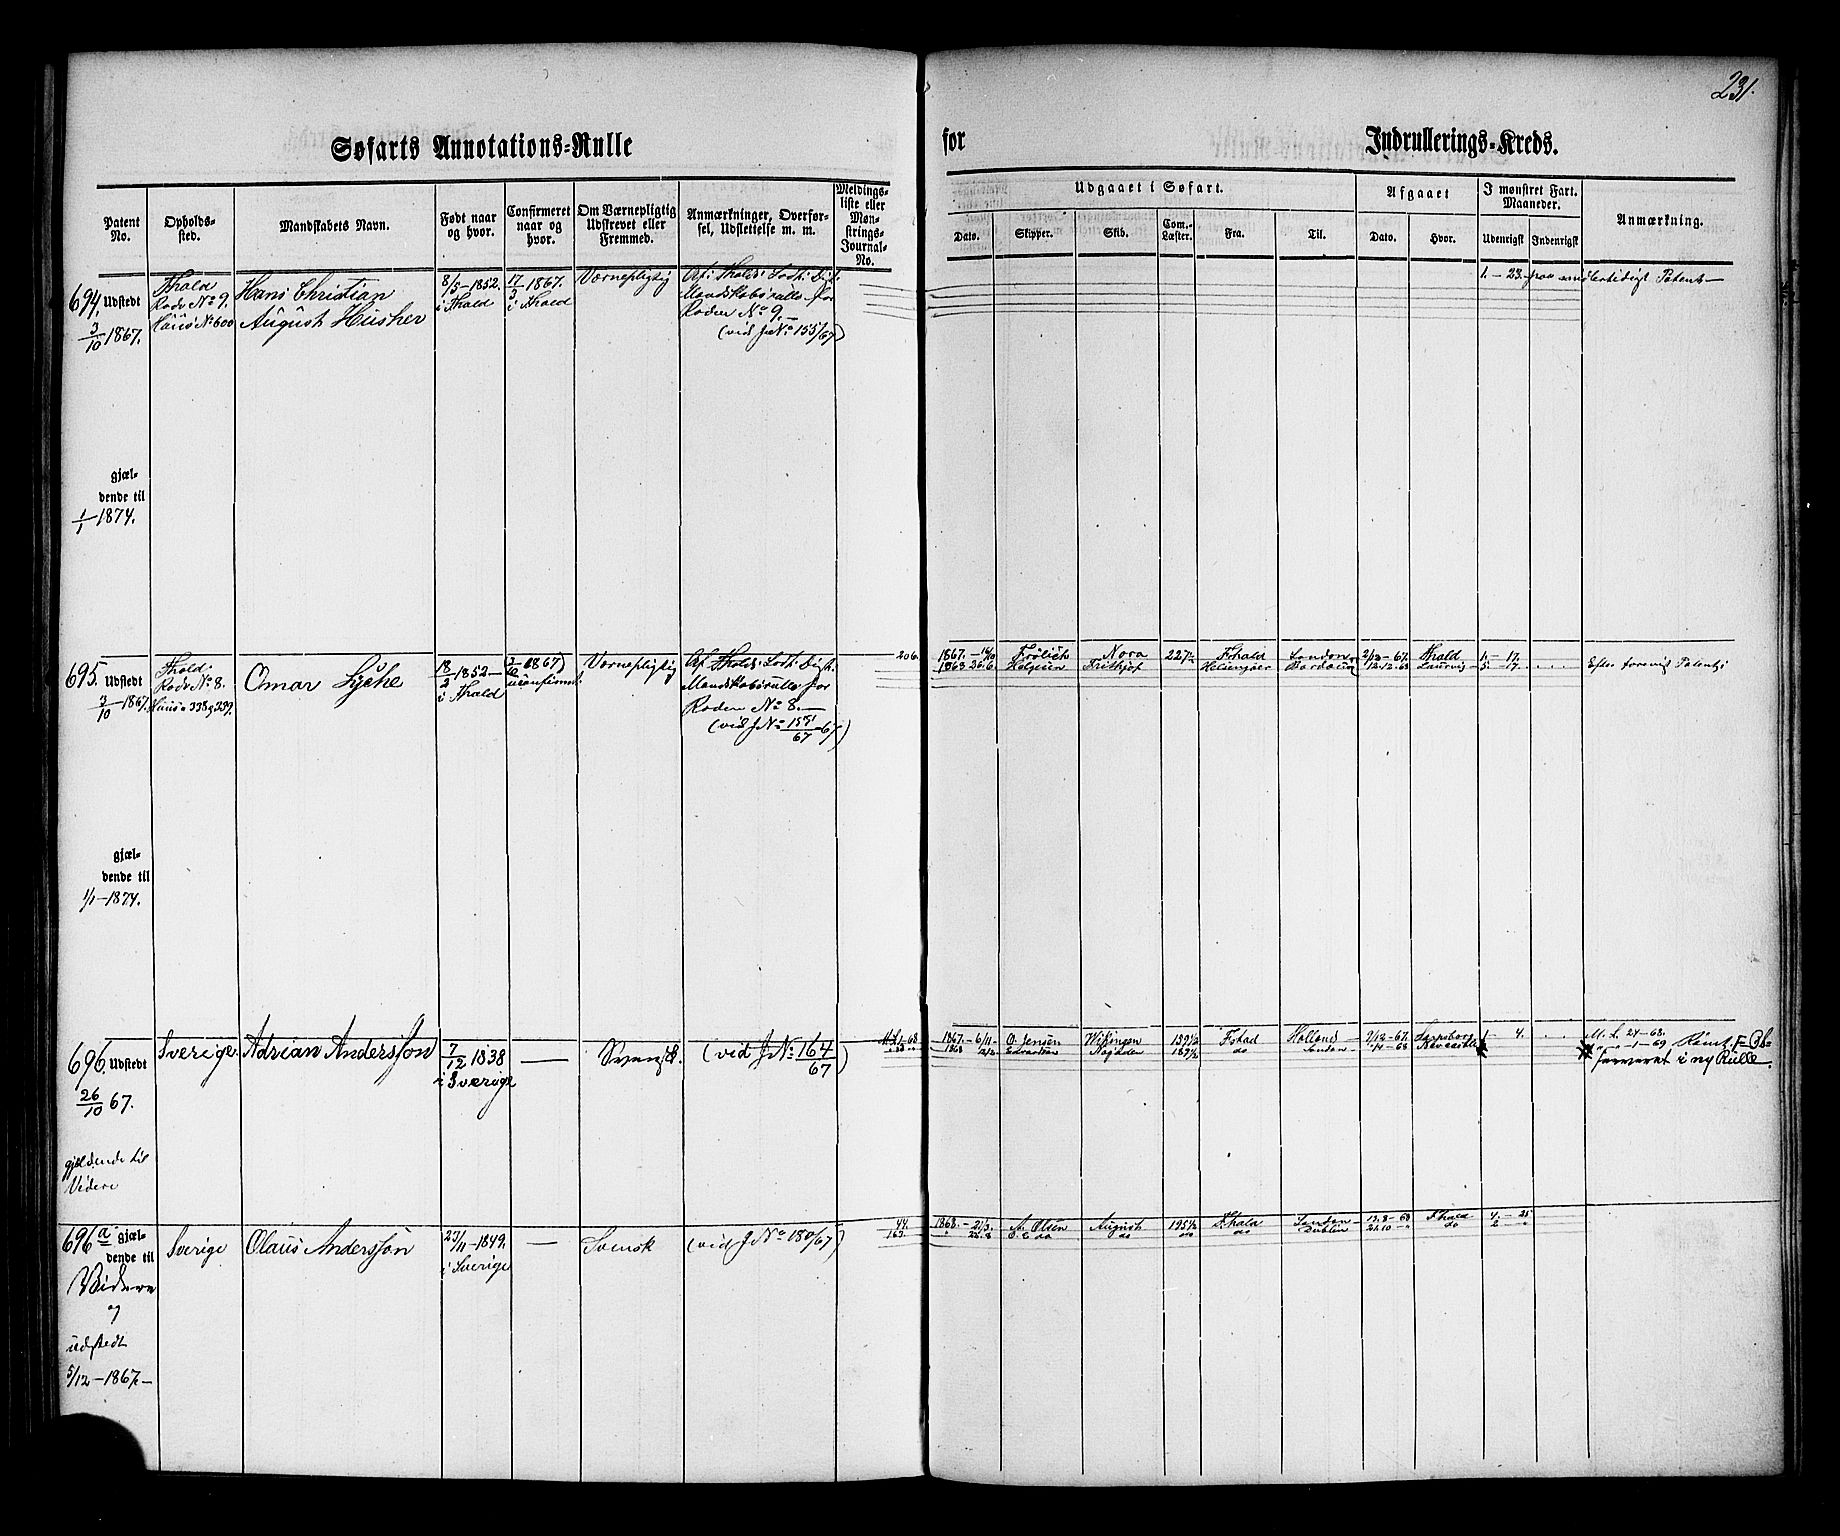 231.
Søfarts Annotations-Rulle for Indrullerings-Kreds.
Patent No.
Opholdssted.
Mandskabets Navn.
Født naar og hvor.
Confirmeret naar og hvor.
Om Værnepligtig Udskrevet eller Fremmed.
Anmærkninger, Overførsel, Udslettelse m. m.
Meldingsliste eller Mønstrings-Journal-No.
Udgaaet i Søfart.
Dato. Skipper. Skib. Com.-Læster. Fra. Til.
Afgaaet
Dato. Hvor.
I mønstret Fart. Maaneder.
Udenrigsk Indenrigsk
Anmærkning.
694. Udstedt
3/10 1867.
gjæl-
dende til
1/1 1874.
Fhald
Rode No 9.
Huus No 600
Hans Christian
August Husher
8/5-1852.
i Fhald
17/3 1867.
i Fhald
Værnepligtig
Af: Fhalds Sødt: Digt.
Mandskabsrulle for
Roden No 9.-
(vid J No 155/67)
1. - 23. paa midlertidigt Patent -
695. Udstedt
3/10 1867.
gjæl-
dende til
1/1-1874.
Fhald
Rode No 8.
Huus 338 & 339.
Omar Lyche
18/2 1852-
i Fhald
uconfirmt.
Værnepligtig
Af Fhalds Sødt: Digt.
Mandskabsrulle for
Roden No 8.-
(vid J No 155/67)
206.
1867. - 14/10 Frölich Nora 227 Fhald London 2/12-67. Fhald 1. - 17.
1868 26.6 Helgesen Frithjof Helsingør Bordeaux 12.12.68 Laurvig 5. 17.
Efter forevist Patent
696. Udstedt
26/10 67.
gjeldende til
Videre
Sverige
Adrian Andersson
7/12 1838
i Sverige
—
Svensk.
(vid J No 164/67)
1867. - 6/11 O. Jensen Wikingen 159 1/2 Fshad Holland 9/12-67. Sarpsborg 1 - 4.
1868 Najaden do London
M. L. 24-68.
forværet i ny Rulle.
696a gjæl-
dende til
Videre
og
udstedt
5/12-1867-
Sverige
Olaus Andersson
23/11-1849.
i Sverige
—
Svensk
(vid J No 180/67)
44. 1868. - 21/3. A. Olsen August 195 1/2 Fhald London 13.8-68 Fhald 4. - 25
do do do Dublin 21.10 do 2